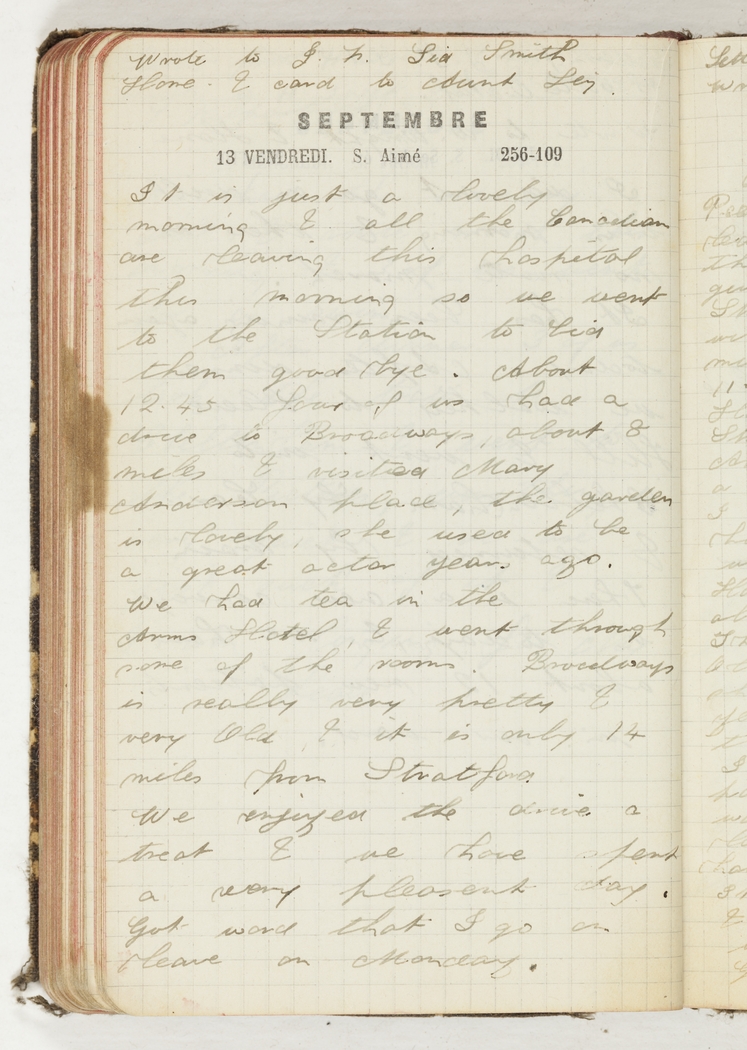 Wrote to J. H. Sid Smith
Home. & card to Aunt
SEPTEMBRE
13 VENDREDI. S. Aimé 256-109
It is just a lovely
morning & all the Canadian
are leaving this hospital
this morning so we went
to the Station to bid
them good bye. About
12.45 four of us had a
drive to Broadways, about 8
miles & visited Mary
Anderson place, the garden
is lovely, she used to be
a great actor years ago.
We had tea in the
Arms Hotel, & went through
some of the rooms. Broadways
is really very pretty &
very Old, & it is only 14
miles from Stratford
We enjoyed the drive a
treat & we have spent
a very pleasent day.
Got word that I go on
leave on Monday.